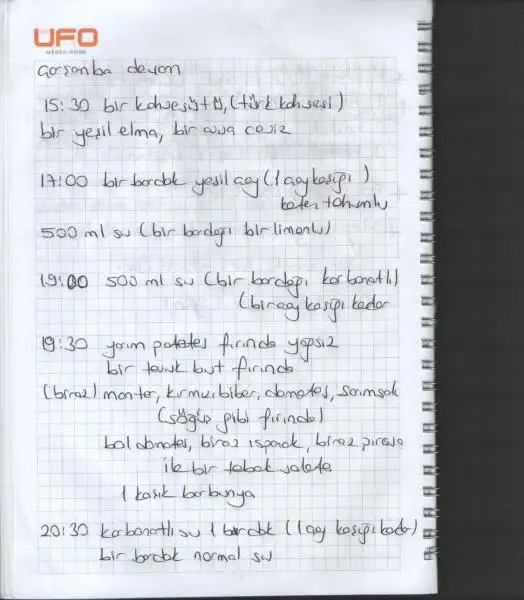 UFO
Çarşanba devam
15:30 bir kahve sütlü, (türk kahvesi)
bir yeşil elma, bir avuç ceviz
17:00 bir bardak yeşil çay (1 çay kaşığı)
keten tohumlu
500 ml su (bir bardağı bir limonlu)
19:00 500 ml su (bir bardağı karbonatlı)
(bir çay kaşığı kadar
19:30 yarım patates fırında yağsız
bir tavuk but fırında
(biraz) mantar, kırmızı biber, domates, sarımsak
(söğüş gibi fırında)
bol domates, biraz ıspanak, biraz pırasa
ile bir tabak salata
1 kaşık barbunya
20:30 karbonatlı su 1 bardak (1 çay kaşığı kadar)
bir bardak normal su